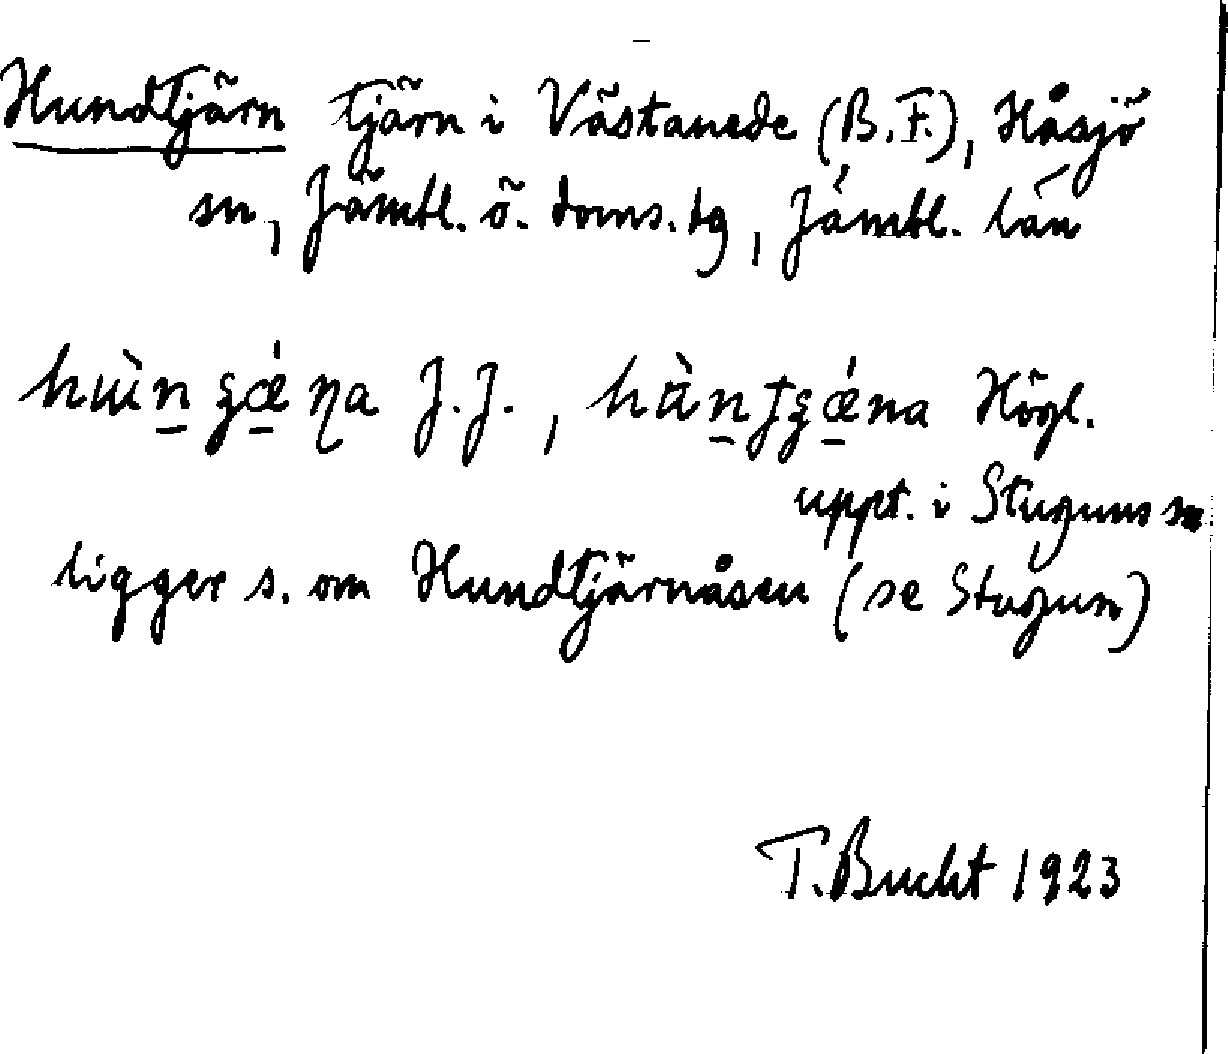 Hundtjärn tjärn i Västanede (B.F.), Håsjö
sn, Jämtl. ö. doms.tg, Jämtl. län
J.J., Högl.
uppt. i Stuguns sn
ligger s. om Hundtjärnåsen (se Stugun)
T. Bucht 1923